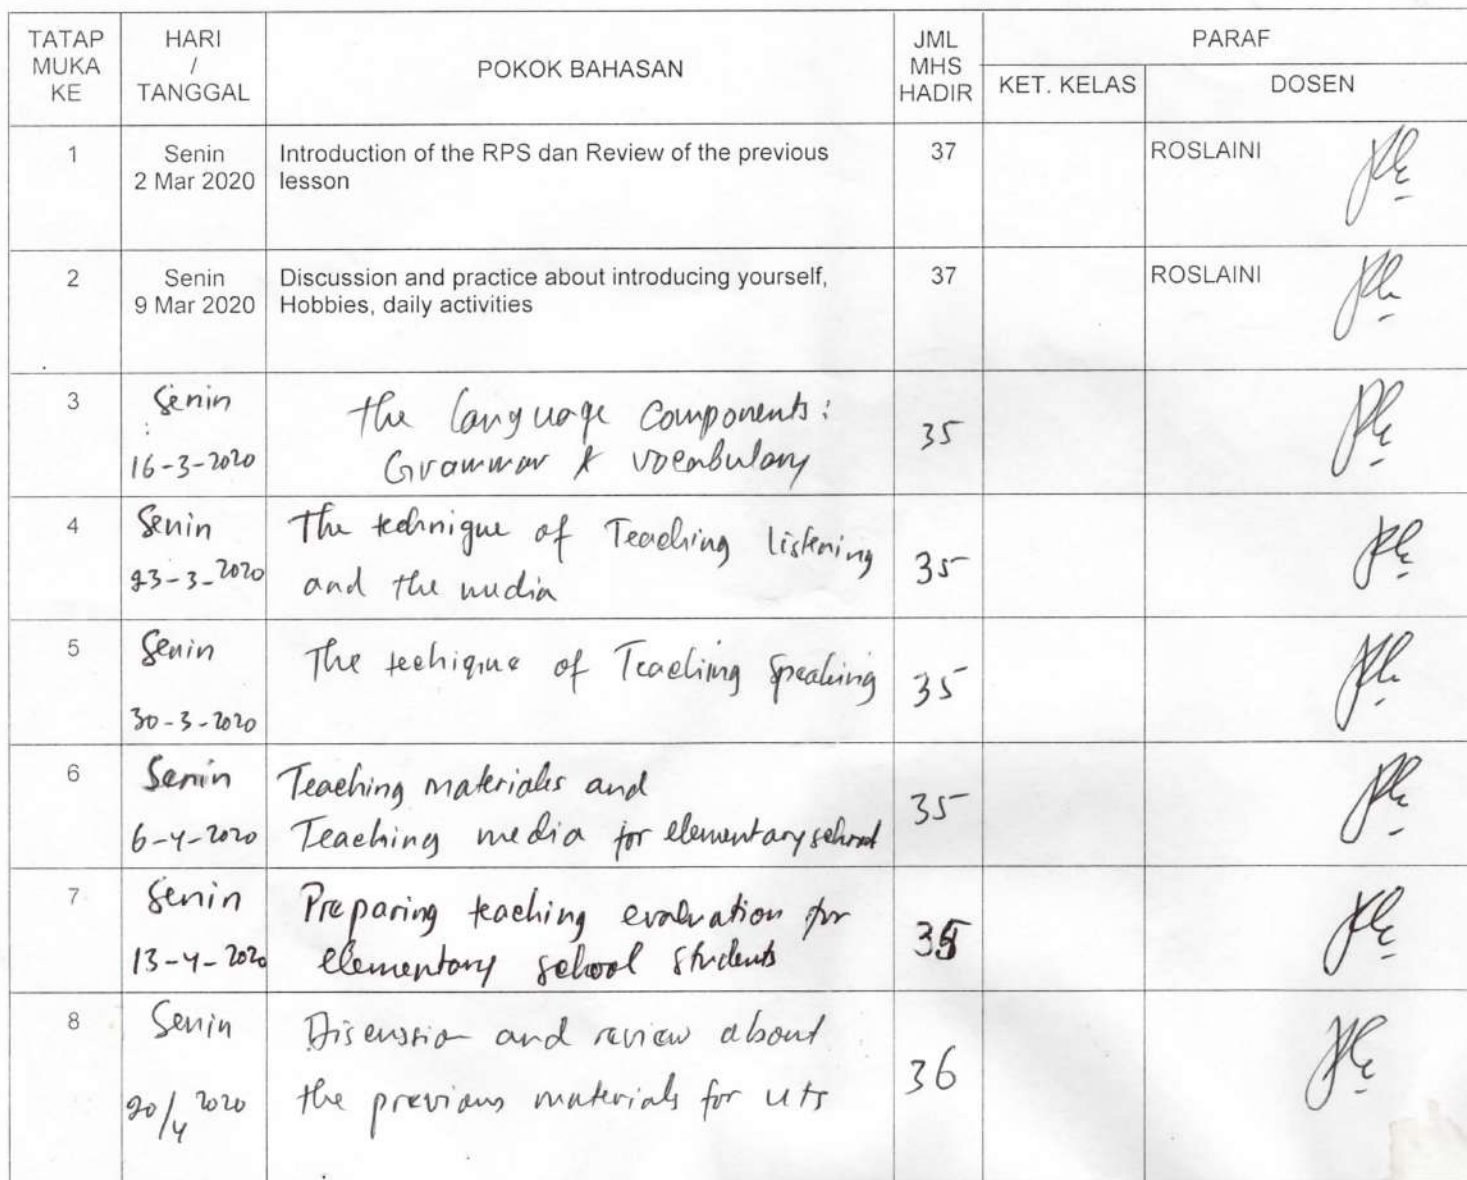 TATAP MUKA KE
HARI / TANGGAL
POKOK BAHASAN
JML MHS HADIR
PARAF
KET. KELAS
DOSEN
1
Senin
2 Mar 2020
Introduction of the RPS dan Review of the previous
lesson
37
ROSLAINI
2
Senin
9 Mar 2020
Discussion and practice about introducing yourself,
Hobbies, daily activities
37
ROSLAINI
3
Senin
16-3-2020
the language components:
Grammar & vocabulary
35
4
Senin
23-3-2020
The technique of Teaching listening
and the media
35
5
Senin
30-3-2020
The techique of Teaching speaking
35
6
Senin
6-4-2020
Teaching materials and
Teaching media for elementary school
35
7
Senin
13-4-2020
Preparing teaching evaluation for
elementary school students
8
Senin
20/4 2020
Discussion and review about
the previous materials for UTS
36